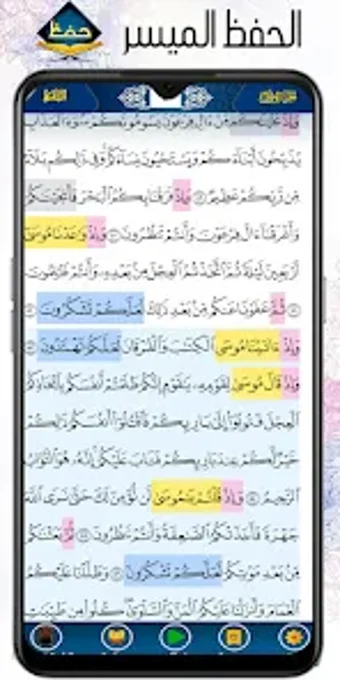 حفظ
الحفظ الميسر
وَإِذْ نَجَّيْنَٰكُم مِّنْ ءَالِ فِرْعَوْنَ يَسُومُونَكُمْ سُوٓءَ ٱلْعَذَابِ
يُذَبِّحُونَ أَبْنَآءَكُمْ وَيَسْتَحْيُونَ نِسَآءَكُمْ وَفِى ذَٰلِكُم بَلَآءٌ
مِّن رَّبِّكُمْ عَظِيمٌ ۝ وَإِذْ فَرَقْنَا بِكُمُ ٱلْبَحْرَ فَأَنجَيْنَٰكُمْ
وَأَغْرَقْنَآ ءَالَ فِرْعَوْنَ وَأَنتُمْ تَنظُرُونَ ۝ وَإِذْ وَٰعَدْنَا مُوسَىٰٓ
أَرْبَعِينَ لَيْلَةً ثُمَّ ٱتَّخَذْتُمُ ٱلْعِجْلَ مِنۢ بَعْدِهِۦ وَأَنتُمْ ظَٰلِمُونَ
۝ ثُمَّ عَفَوْنَا عَنكُم مِّنۢ بَعْدِ ذَٰلِكَ لَعَلَّكُمْ تَشْكُرُونَ ۝
وَإِذْ ءَاتَيْنَا مُوسَى ٱلْكِتَٰبَ وَٱلْفُرْقَانَ لَعَلَّكُمْ تَهْتَدُونَ ۝
وَإِذْ قَالَ مُوسَىٰ لِقَوْمِهِۦ يَٰقَوْمِ إِنَّكُمْ ظَلَمْتُمْ أَنفُسَكُم بِٱتِّخَاذِكُمُ
ٱلْعِجْلَ فَتُوبُوٓا۟ إِلَىٰ بَارِئِكُمْ فَٱقْتُلُوٓا۟ أَنفُسَكُمْ ذَٰلِكُمْ
خَيْرٌ لَّكُمْ عِندَ بَارِئِكُمْ فَتَابَ عَلَيْكُمْ إِنَّهُۥ هُوَ ٱلتَّوَّابُ
ٱلرَّحِيمُ ۝ وَإِذْ قُلْتُمْ يَٰمُوسَىٰ لَن نُّؤْمِنَ لَكَ حَتَّىٰ نَرَى ٱللَّهَ
جَهْرَةً فَأَخَذَتْكُمُ ٱلصَّٰعِقَةُ وَأَنتُمْ تَنظُرُونَ ۝ ثُمَّ بَعَثْنَٰكُم
مِّنۢ بَعْدِ مَوْتِكُمْ لَعَلَّكُمْ تَشْكُرُونَ ۝ وَظَلَّلْنَا عَلَيْكُمُ
ٱلْغَمَامَ وَأَنزَلْنَا عَلَيْكُمُ ٱلْمَنَّ وَٱلسَّلْوَىٰ كُلُوا۟ مِن طَيِّبَٰتِ